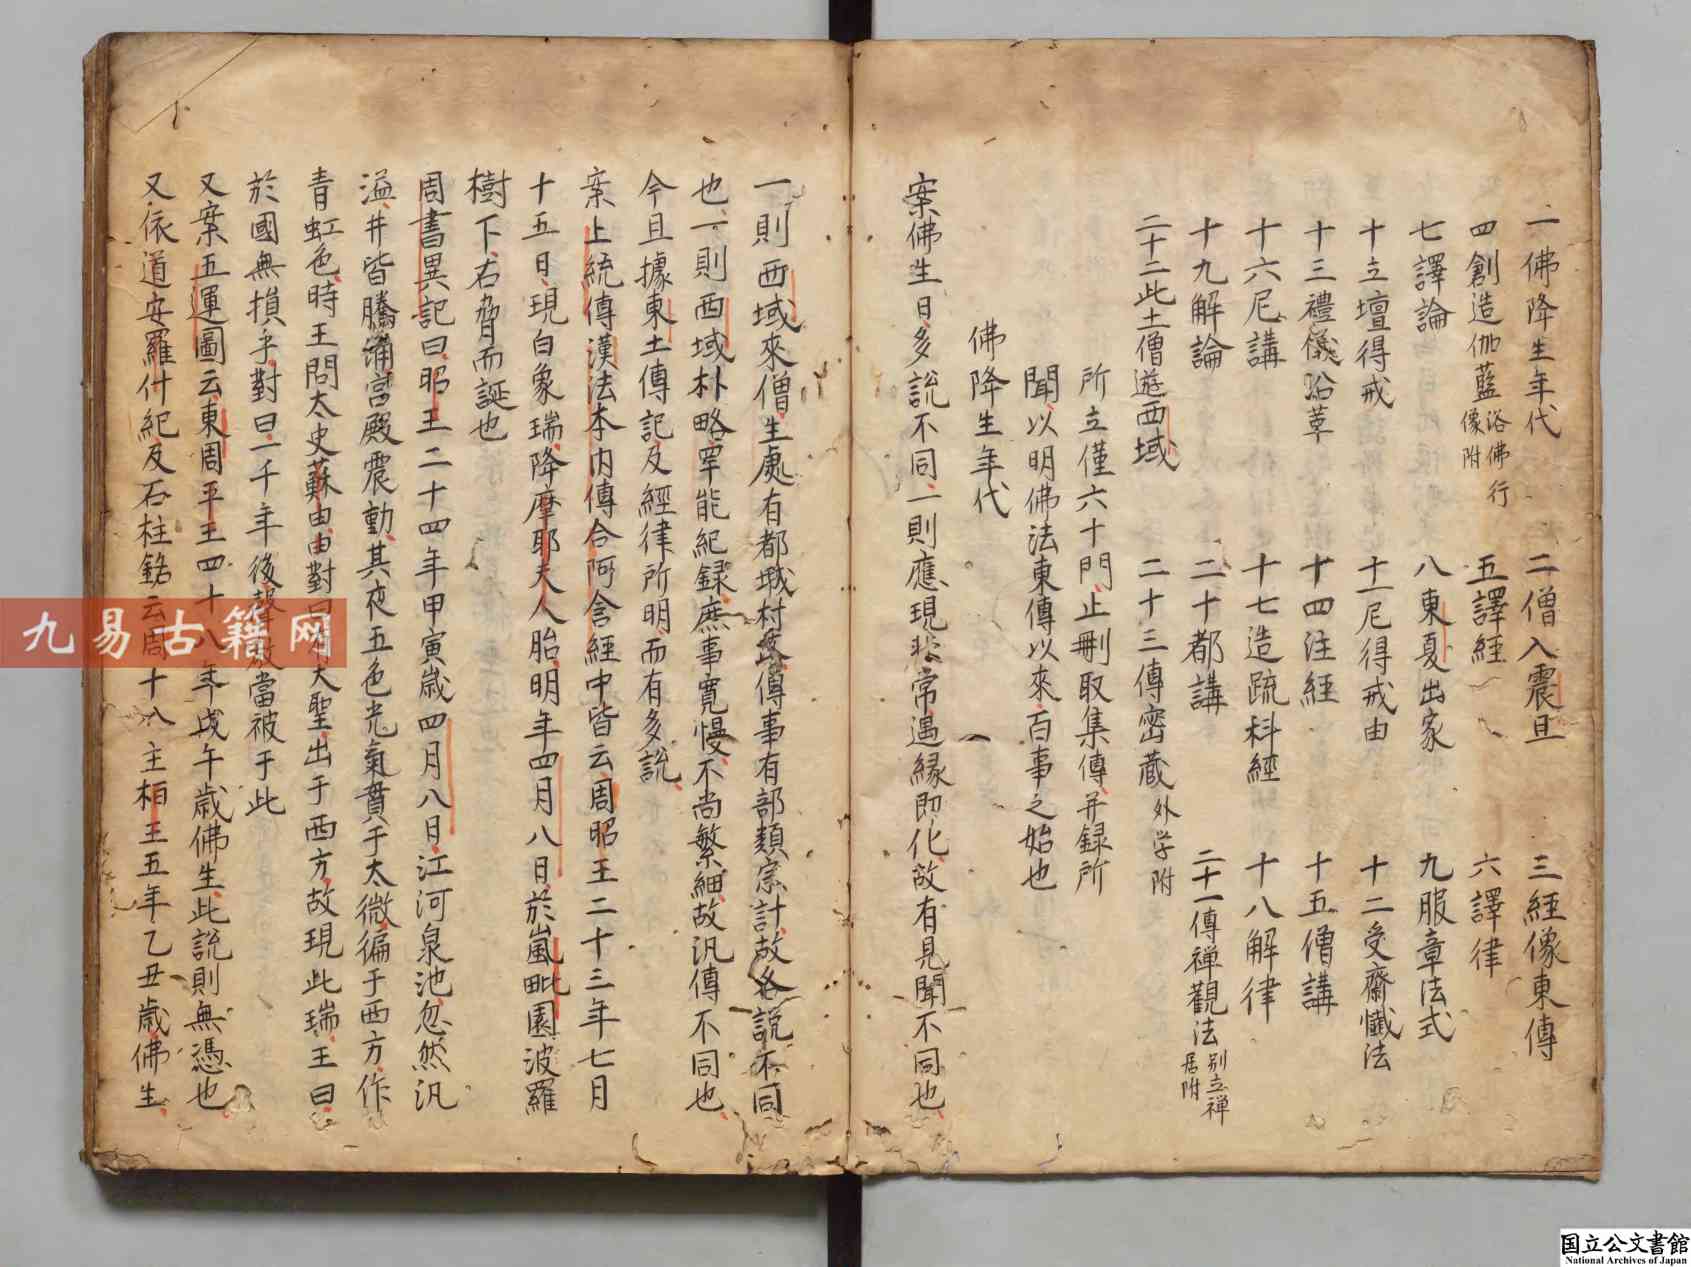 一佛降生年代 二僧入震旦 三經像東傳
四創造伽藍浴佛行像附 五譯經 六譯律
七譯論 八東夏出家 九服章法式
十立壇得戒 十一尼得戒由 十二受齋懺法
十三禮儀沿革 十四注經 十五僧講
十六尼講 十七造疏科經 十八解律
十九解論 二十都講 二十一傳禅觀法別立禅居附
二十二此土僧遊西域 二十三傳密藏外学附
所立僅六十門、止刪取集傳、并録所
聞、以明佛法東傳以來、百事之始也
佛降生年代
案佛生日、多説不同、一則應現非常、遇縁即化、故有見聞不同也、
一則西域來僧、生處有都城村、傳事有部類宗計、故各説不同
也、一則西域朴略、罕能紀録、庶事寛慢、不尚繁細、故汎傳不同也、
今且據東土傳記及經律所明、而有多説、
案上統傳漢法本内傳合阿含經中皆云、周昭王二十三年七月
十五日、現白象瑞、降摩耶夫人胎、明年四月八日、於嵐毗園波羅
樹下、右脅而誕也
周書異記曰、昭王二十四年甲寅歳四月八日、江河泉池、忽然汎
溢、井皆騰涌、宮殿震動、其夜五色光氣貫于太微、徧于西方、作
青虹色、時王問太史蘇由、由對曰、有大聖、出于西方、故現此瑞、王曰、
於國無損乎、對曰、一千年後、聲教當被于此
又案五運圖云、東周平王四十八年戊午歳佛生、此説則無憑也、
又依道安羅什紀及石柱銘云、周十八主桓王五年乙丑歳佛生、
九易古籍网
国立公文書館
National Archives of Japan